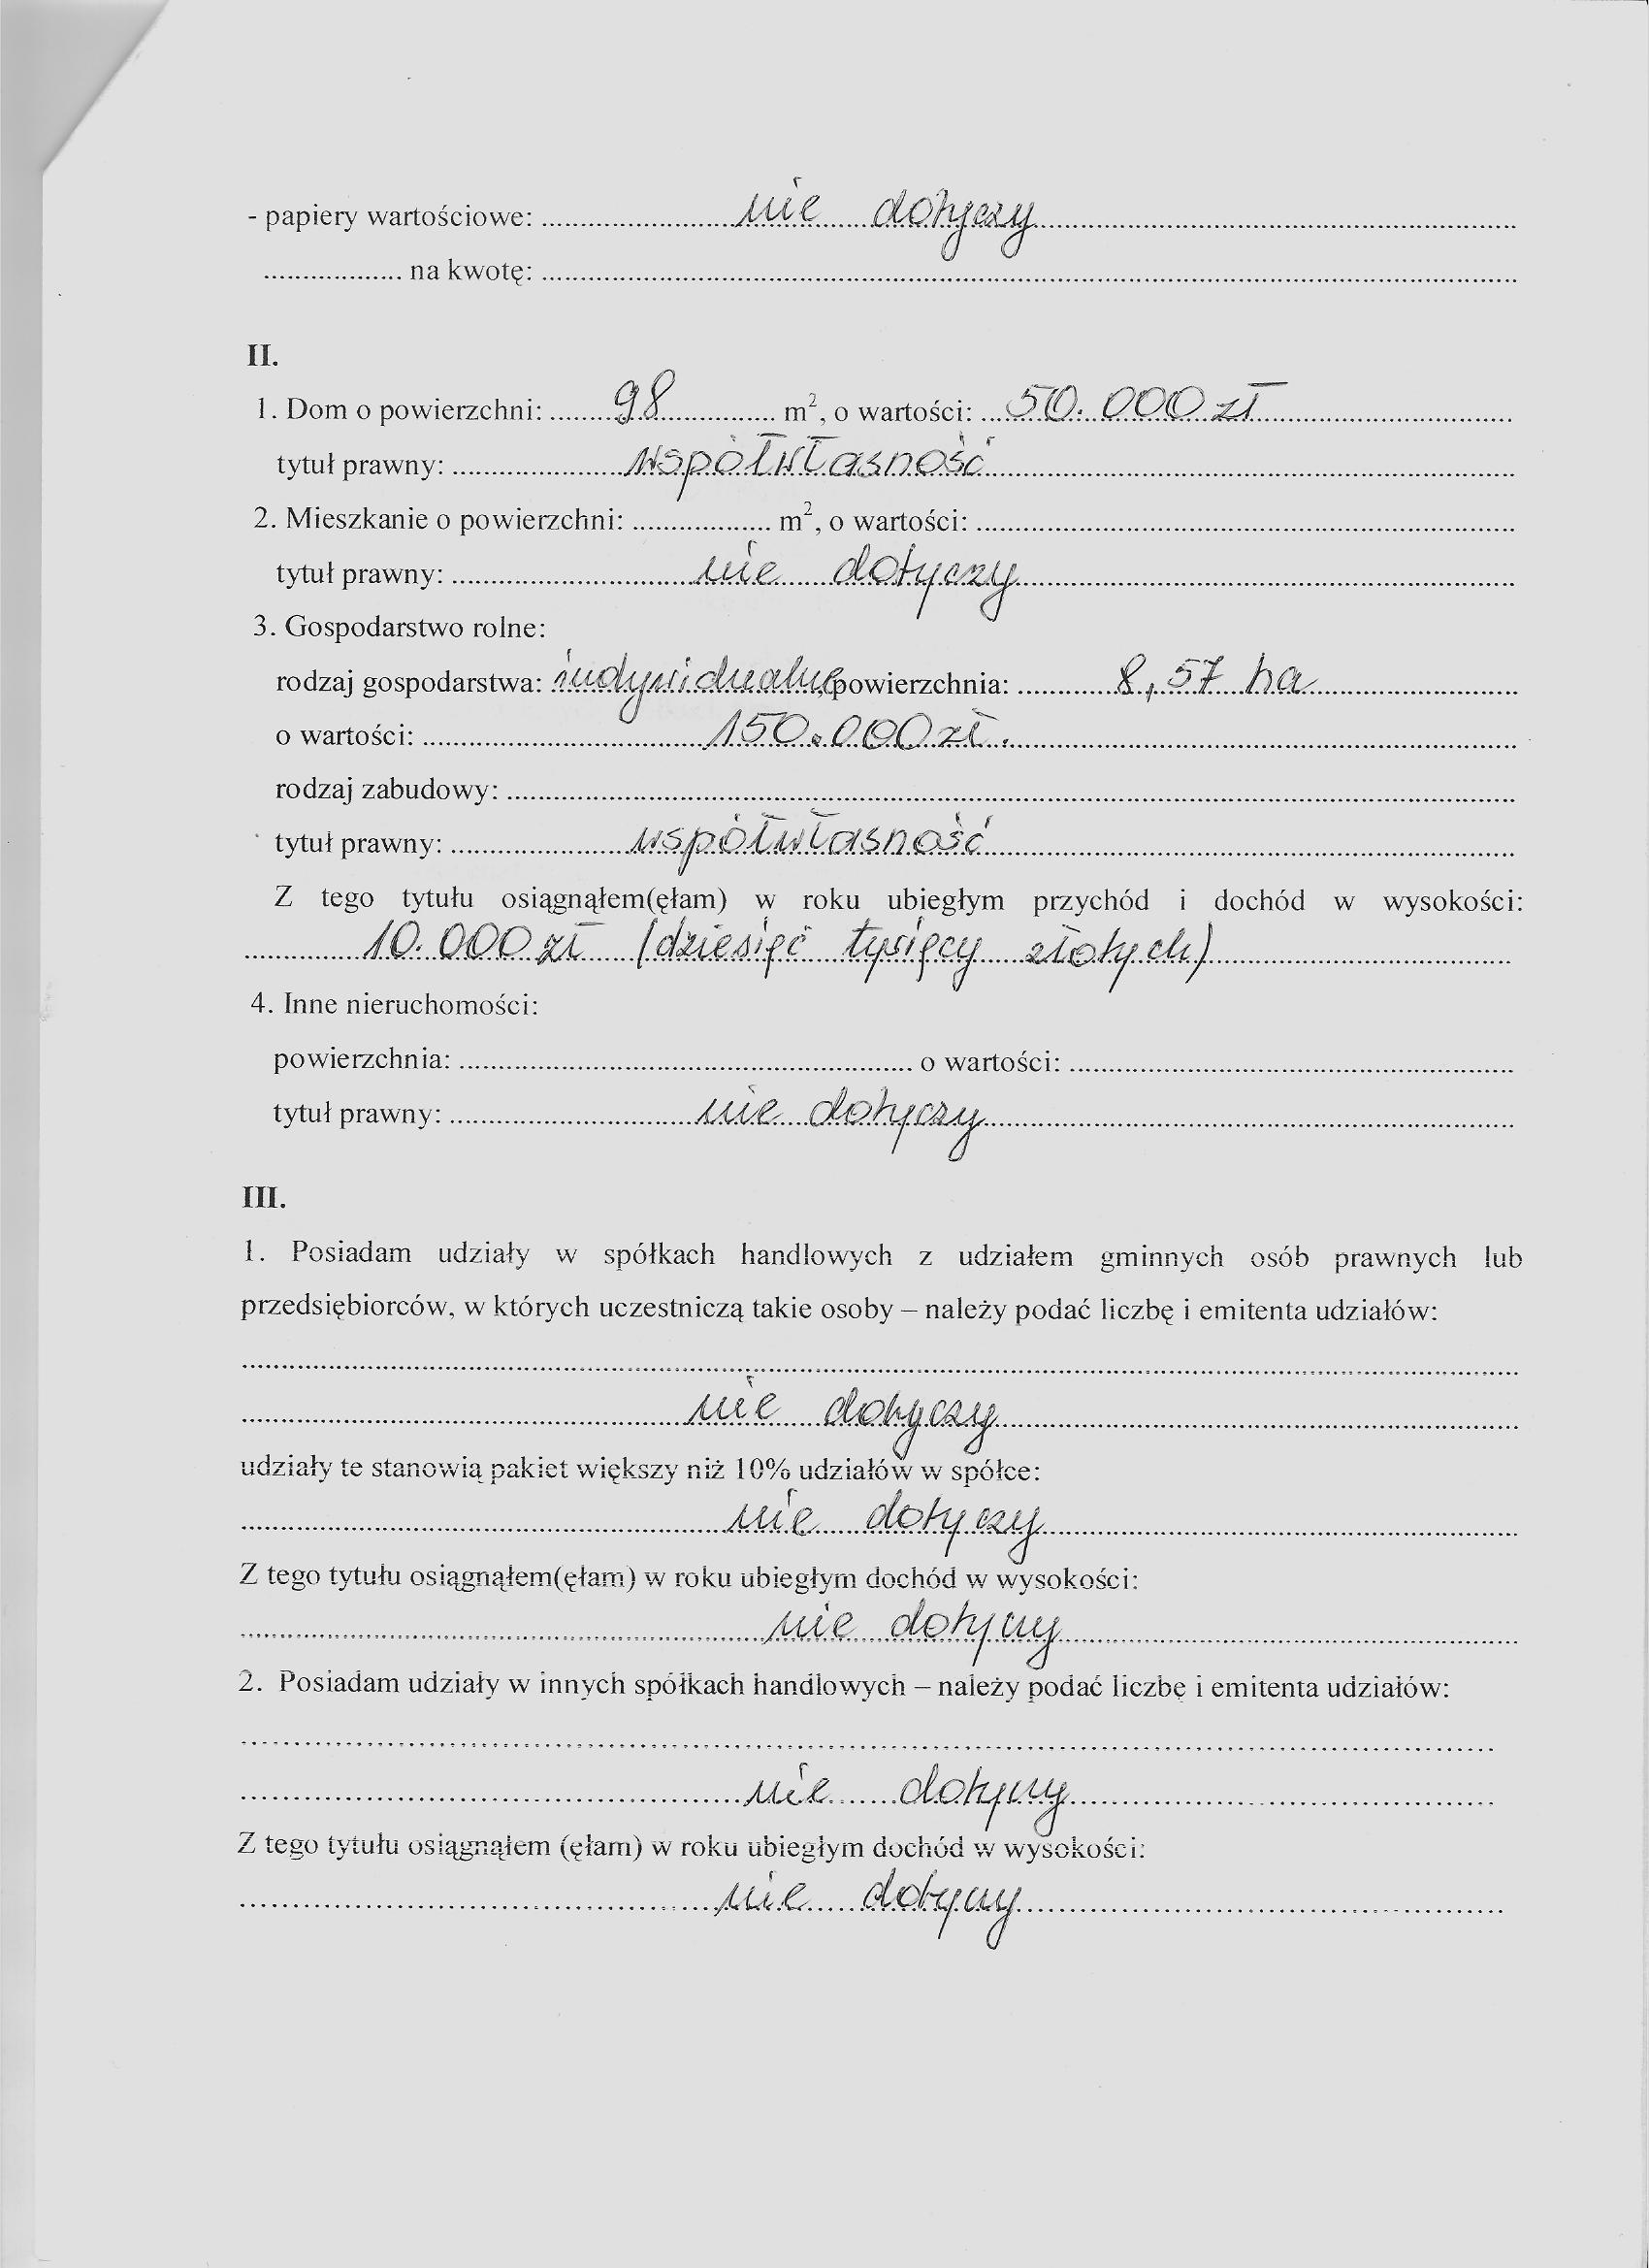 - papiery wartościowe: ........ nie dotyczy ........
........ na kwotę: ........
II.
1. Dom o powierzchni: ........ 98 ........ m², o wartości: ... 50.000 zł ........
tytuł prawny: ........ współwłasność ........
2. Mieszkanie o powierzchni: ........ m², o wartości: ........
tytuł prawny: ........ nie dotyczy ........
3. Gospodarstwo rolne:
rodzaj gospodarstwa: indywidualne, powierzchnia: ........ 8,57 ha ........
o wartości: ........ 150.000 zł. ........
rodzaj zabudowy: ........
tytuł prawny: ........ współwłasność ........
Z tego tytułu osiągnąłem(ęłam) w roku ubiegłym przychód i dochód w wysokości:
........ 10.000 zł (dziesięć tysięcy złotych) ........
4. Inne nieruchomości:
powierzchnia: ........ o wartości: ........
tytuł prawny: ........ nie dotyczy ........
III.
1. Posiadam udziały w spółkach handlowych z udziałem gminnych osób prawnych lub
przedsiębiorców, w których uczestniczą takie osoby – należy podać liczbę i emitenta udziałów:
........
........ nie dotyczy ........
udziały te stanowią pakiet większy niż 10% udziałów w spółce:
........ nie dotyczy ........
Z tego tytułu osiągnąłem(ęłam) w roku ubiegłym dochód w wysokości:
........ nie dotyczy ........
2. Posiadam udziały w innych spółkach handlowych – należy podać liczbę i emitenta udziałów:
........
........ nie dotyczy ........
Z tego tytułu osiągnąłem (ęłam) w roku ubiegłym dochód w wysokości:
........ nie dotyczy ........